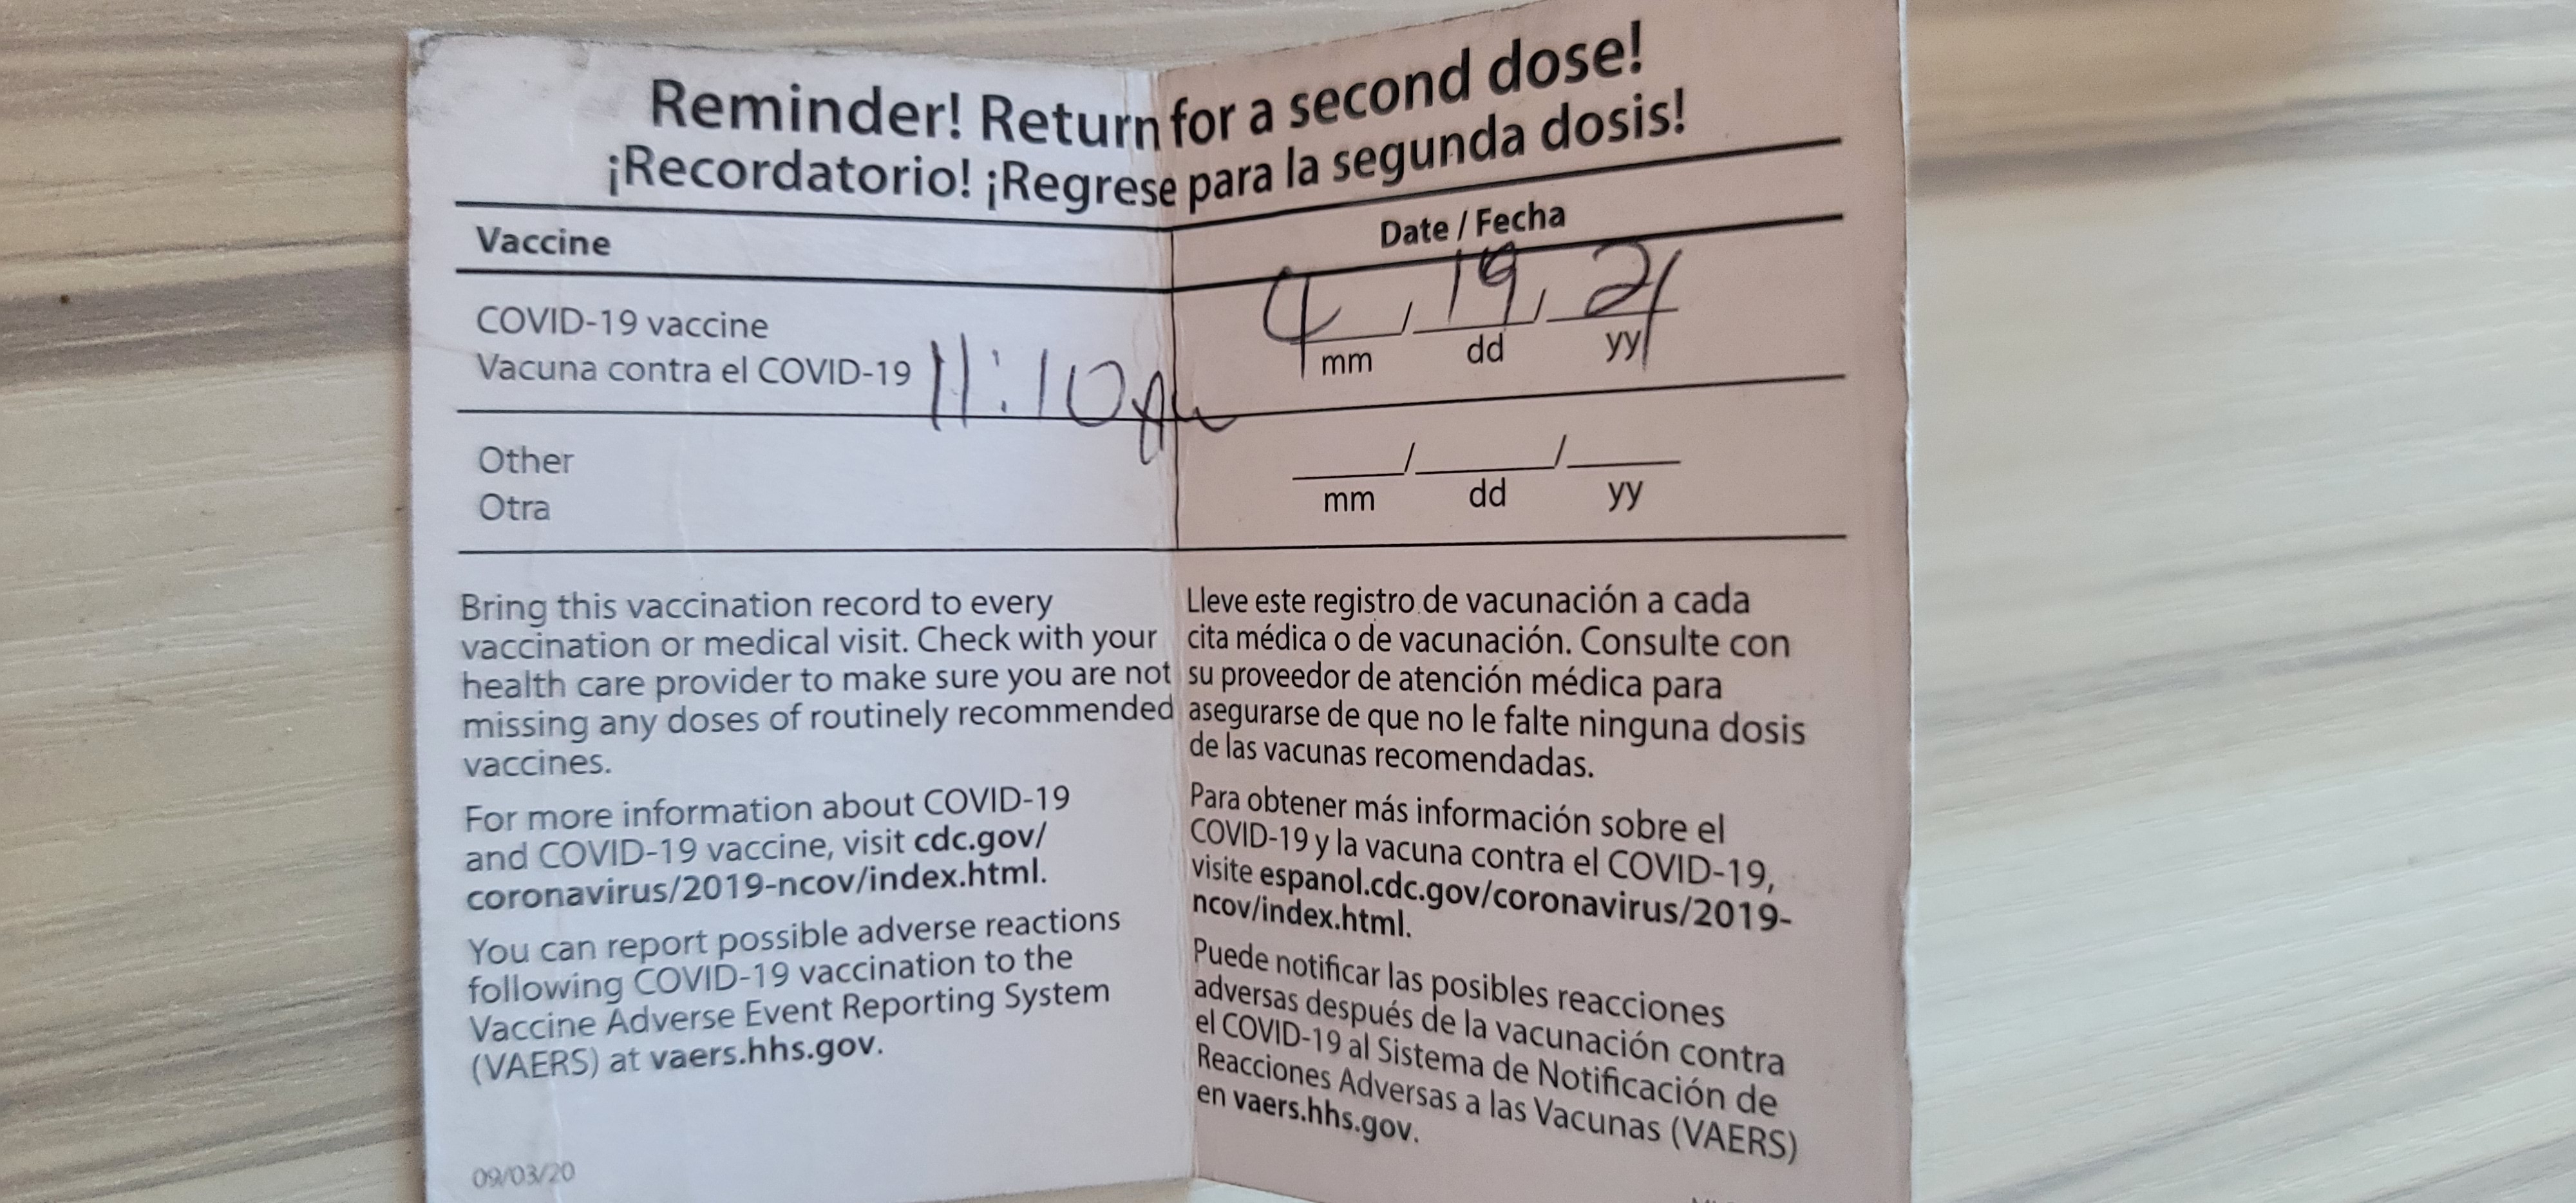 Reminder! Return for a second dose!
¡Recordatorio! ¡Regrese para la segunda dosis!
Vaccine Date / Fecha
COVID-19 vaccine 4 / 19 / 21
Vacuna contra el COVID-19 11:10 AM mm dd yy
Other ____/____/____
Otra mm dd yy
Bring this vaccination record to every
vaccination or medical visit. Check with your
health care provider to make sure you are not
missing any doses of routinely recommended
vaccines.
For more information about COVID-19
and COVID-19 vaccine, visit cdc.gov/
coronavirus/2019-ncov/index.html.
You can report possible adverse reactions
following COVID-19 vaccination to the
Vaccine Adverse Event Reporting System
(VAERS) at vaers.hhs.gov.
09/03/20
Lleve este registro de vacunación a cada
cita médica o de vacunación. Consulte con
su proveedor de atención médica para
asegurarse de que no le falte ninguna dosis
de las vacunas recomendadas.
Para obtener más información sobre el
COVID-19 y la vacuna contra el COVID-19,
visite espanol.cdc.gov/coronavirus/2019-
ncov/index.html.
Puede notificar las posibles reacciones
adversas después de la vacunación contra
el COVID-19 al Sistema de Notificación de
Reacciones Adversas a las Vacunas (VAERS)
en vaers.hhs.gov.